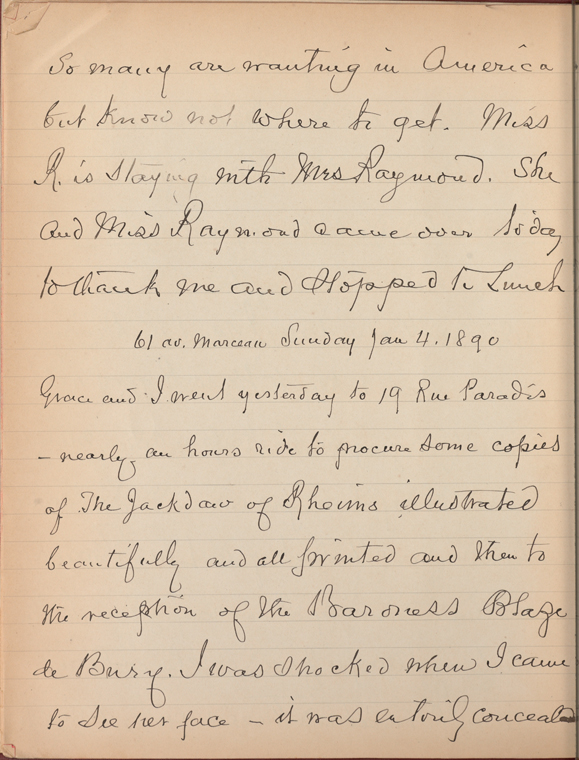 So many are wanting in America
but know not where to get. Miss
R. is staying with Mrs Raymond. She
and Miss Raymond came over today
to thank me and stopped to Lunch
61 av. Marceau Sunday Jan 4. 1890
Grace and I went yesterday to 19 Rue Paradis
- nearly an hours ride to procure some copies
of The Jackdaw of Rheims illustrated
beautifully and all printed and then to
the reception of the Baroness Blaze
de Bury. I was shocked when I came
to see her face - it was entirely concealed